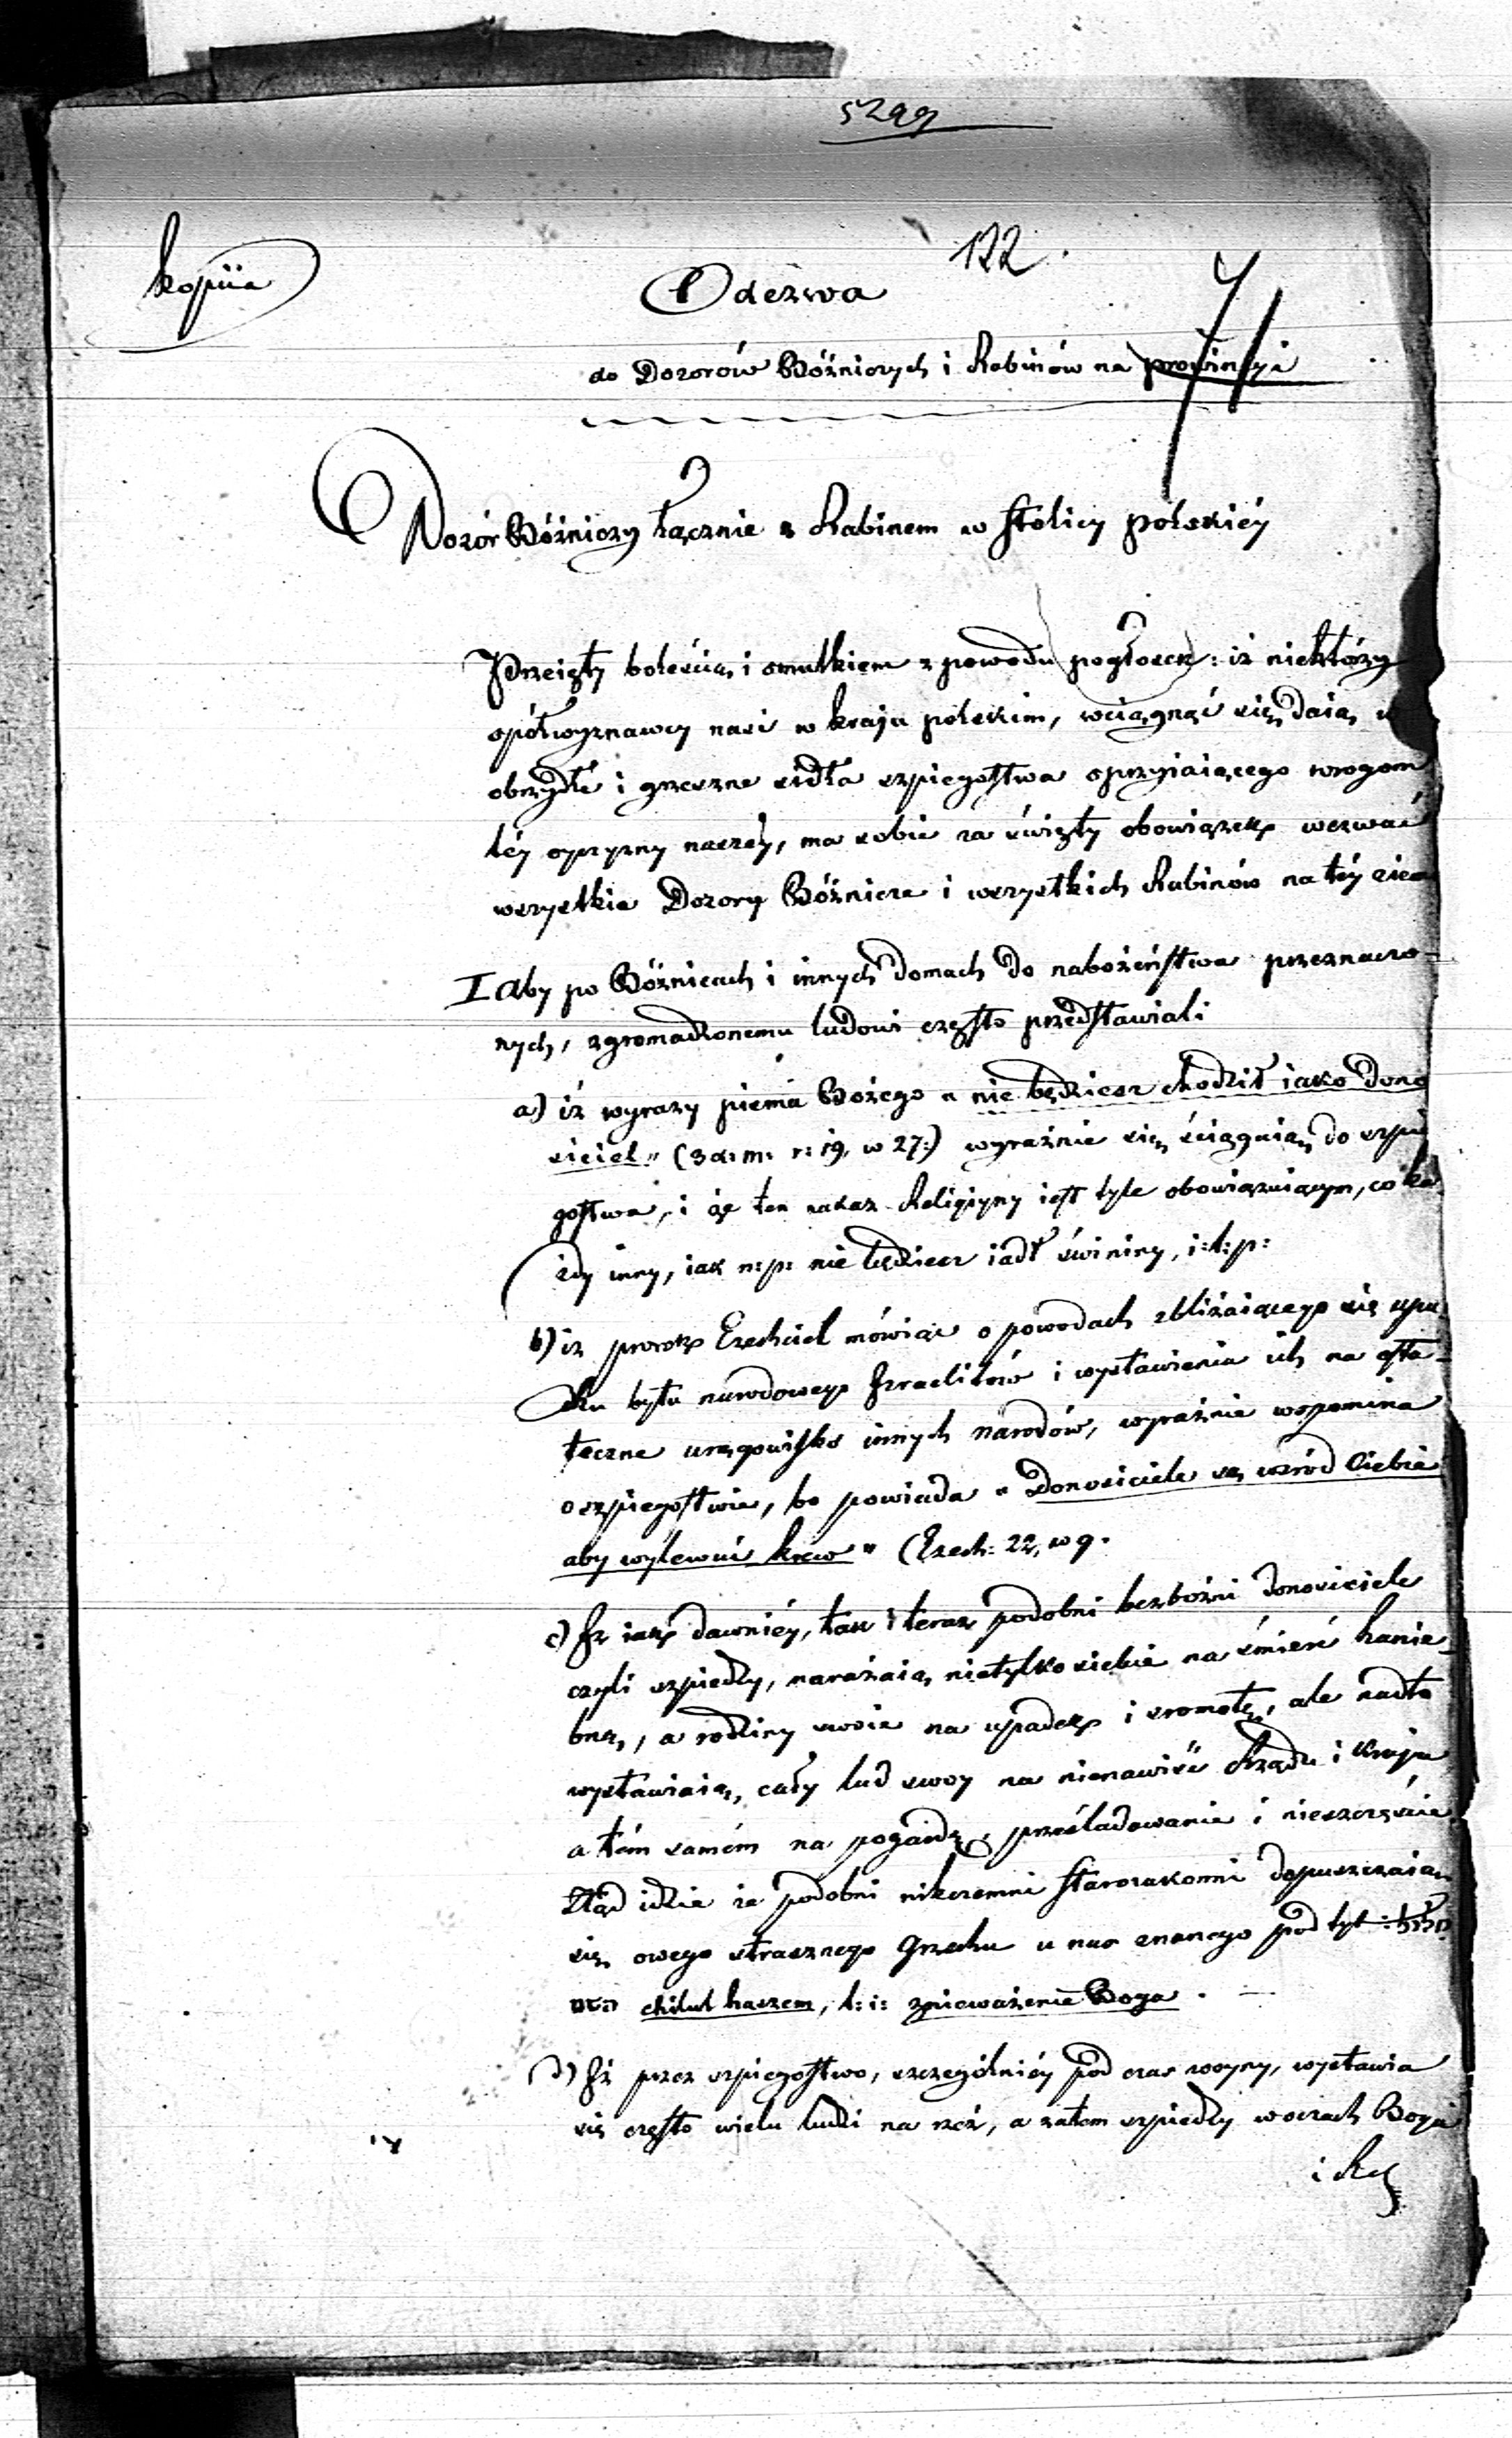 5299
122.
kopiia
Odezwa
71
do Dozorów Bóżniczych i Rabinów na prowincyi
Dozór Bóżniczy łącznie z Rabinem w stolicy polskiéy
Przeięty boleścią i smutkiem z powodu pogłosek: iż niektórzy
spółwyznawcy nasi w kraju polskim, wciągnąć się daią w
obrzydłe i grzeszne sidła szpiegostwa sprzyiaiącego wrogom
téy oyczyzny naszéy, ma sobie za święty obowiązek wezwać
wszystkie Dozory Bóżnicze i wszystkich Rabinów na téy ziemi
I Aby po Bóżnicach i innych domach do nabożeństwa przeznaczo-
nych, zgromadzonemu ludowi często przedstawiali
a) iż wyrazy pisma Bożego „ nie będziesz chodził iako dono
siciel „ (3 x: m: r: 19, w 27:) wyraźnie się ściągaią do szpie
gostwa, i że ten nakaz Religiyny iest tyle obowiązuiącym, co ka
żdy inny, iak n:p: nie będziesz iadł świniny, i:t:p:
b) iż prorok Ezechiel mówiąc o powodach zbliżaiącego się upa
dku bytu narodowego Izraelitów i wystawienia ich na osta-
teczne urągowisko innych narodów, wyraźnie wspomina
o szpiegostwie, bo powiada „ Donosiciele są wśród Ciebie
aby wylewać krew „ (Ezech: 22, w 9.
c) Iż iak dawniéy, tak i teraz podobni bezbożni donosiciele
czyli szpiedzy, narażaią nietylko siebie na śmierć hanie
bną, a rodziny swoie na upadek i sromotę, ale nadto
wystawiaią, cały lud swoy na nienawiść Rządu i Kraju
a tém samém na pogardę, prześladowanie i nieszczęście
Ztąd idzie że podobni nikczemni starozakonni dopuszczaią
się owego strasznego grzechu u nas znanego pod tyt: חלול
השם chilul haszem, t: i: znieważenie Boga.
d) Iż przez szpiegostwo, szczególniéy pod czas woyny, wystawia
się często wielu ludzi na rzeź, a zatem szpiedzy w oczach Boga